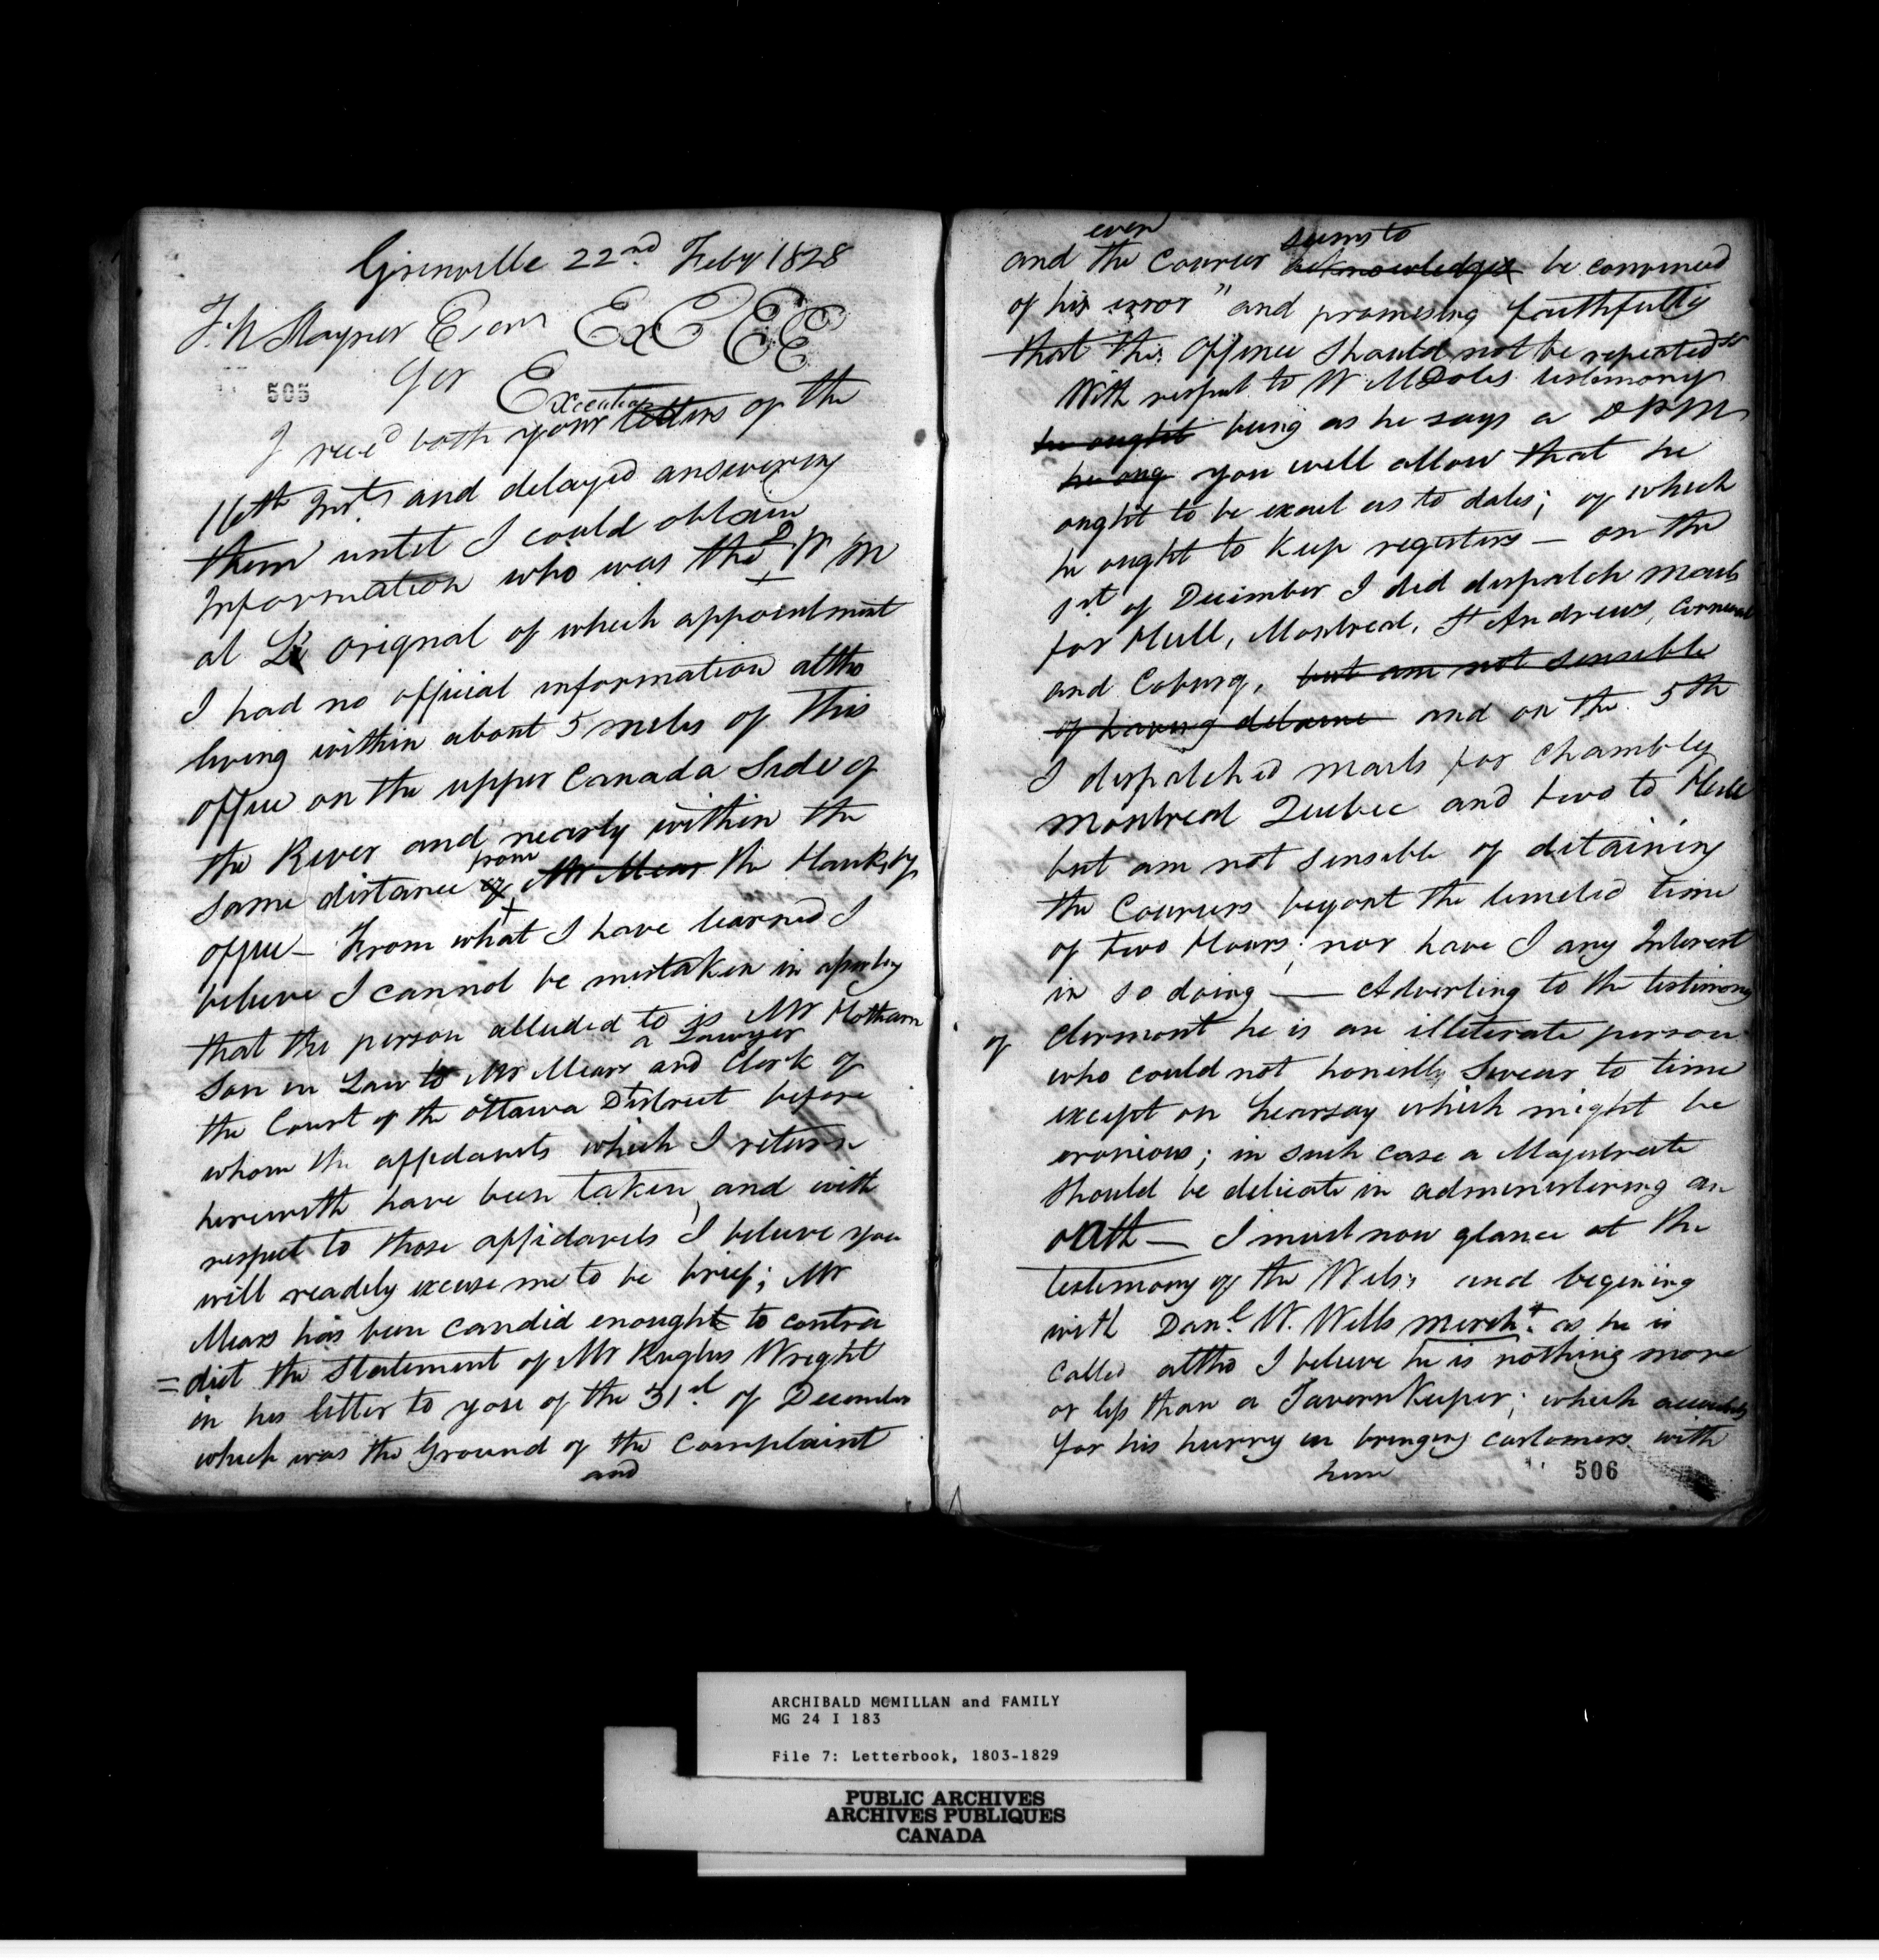 Grenville 22nd Feby 1828
T. A. Stayner Esqr Ex C E E E
505
Sir Execution
I recd both your letters of the
16th Inst and delayed answering
them until I could obtain
Information who was the D P M
at L'Orignal of which appointment
I had no official information altho
living within about 5 miles of this
office on the upper Canada Side of
the River and nearly within the
from
same distance of Mr Mears the Hawksby
office — From what I have learned I
believe I cannot be mistaken in
that the person alluded to is Mr Hotham
a Lawyer
Son in Law to Mr Mears and Clerk of
the Court of the Ottawa District before
whom the affidavits which I return
herewith have been taken, and with
respect to those affidavits I believe you
will readily excuse me to be brief; Mr
Mears has been candid enought to contra
=dict the Statement of Mr Ruglus Wright
in his letter to you of the 31st of December
which was the Ground of the Complaint
and
even seems to
and the Courier acknowledges be convinced
of his error" and promising faithfully
that this Offence should not be repeated
With respect to W McDoles testimony
he ought being as he says a DPM
he ong you well allow that he
ought to be exact as to dates; of which
he ought to keep registers — on the
1st of December I did dispatch mails
for Hull, Montreal, St Andrews, Cornwall
and Coburg, but am not sensible
of having detaine and on the 5th
I dispatched mails for Chambly
Montreal Quebec and two to Hull
but am not sensible of detaining
the Couriers beyont the limeted time
of two Hours; nor have I any Interest
in so doing — Adverting to the testimony
of Clermont he is an illiterate person
who could not honestly Swear to time
except on hearsay which might be
eronious; in such case a Majestrate
should be delicate in administering an
oath — I must now glance at the
testimony of the Wells; and begining
with Danl. W. Wells mercht. as he is
called altho I believe he is nothing more
or less than a Tavern Keeper; which accounts
for his hurry in bringing customers with
him
506
ARCHIBALD MCMILLAN and FAMILY
MG 24 I 183
File 7: Letterbook, 1803-1829
PUBLIC ARCHIVES
ARCHIVES PUBLIQUES
CANADA